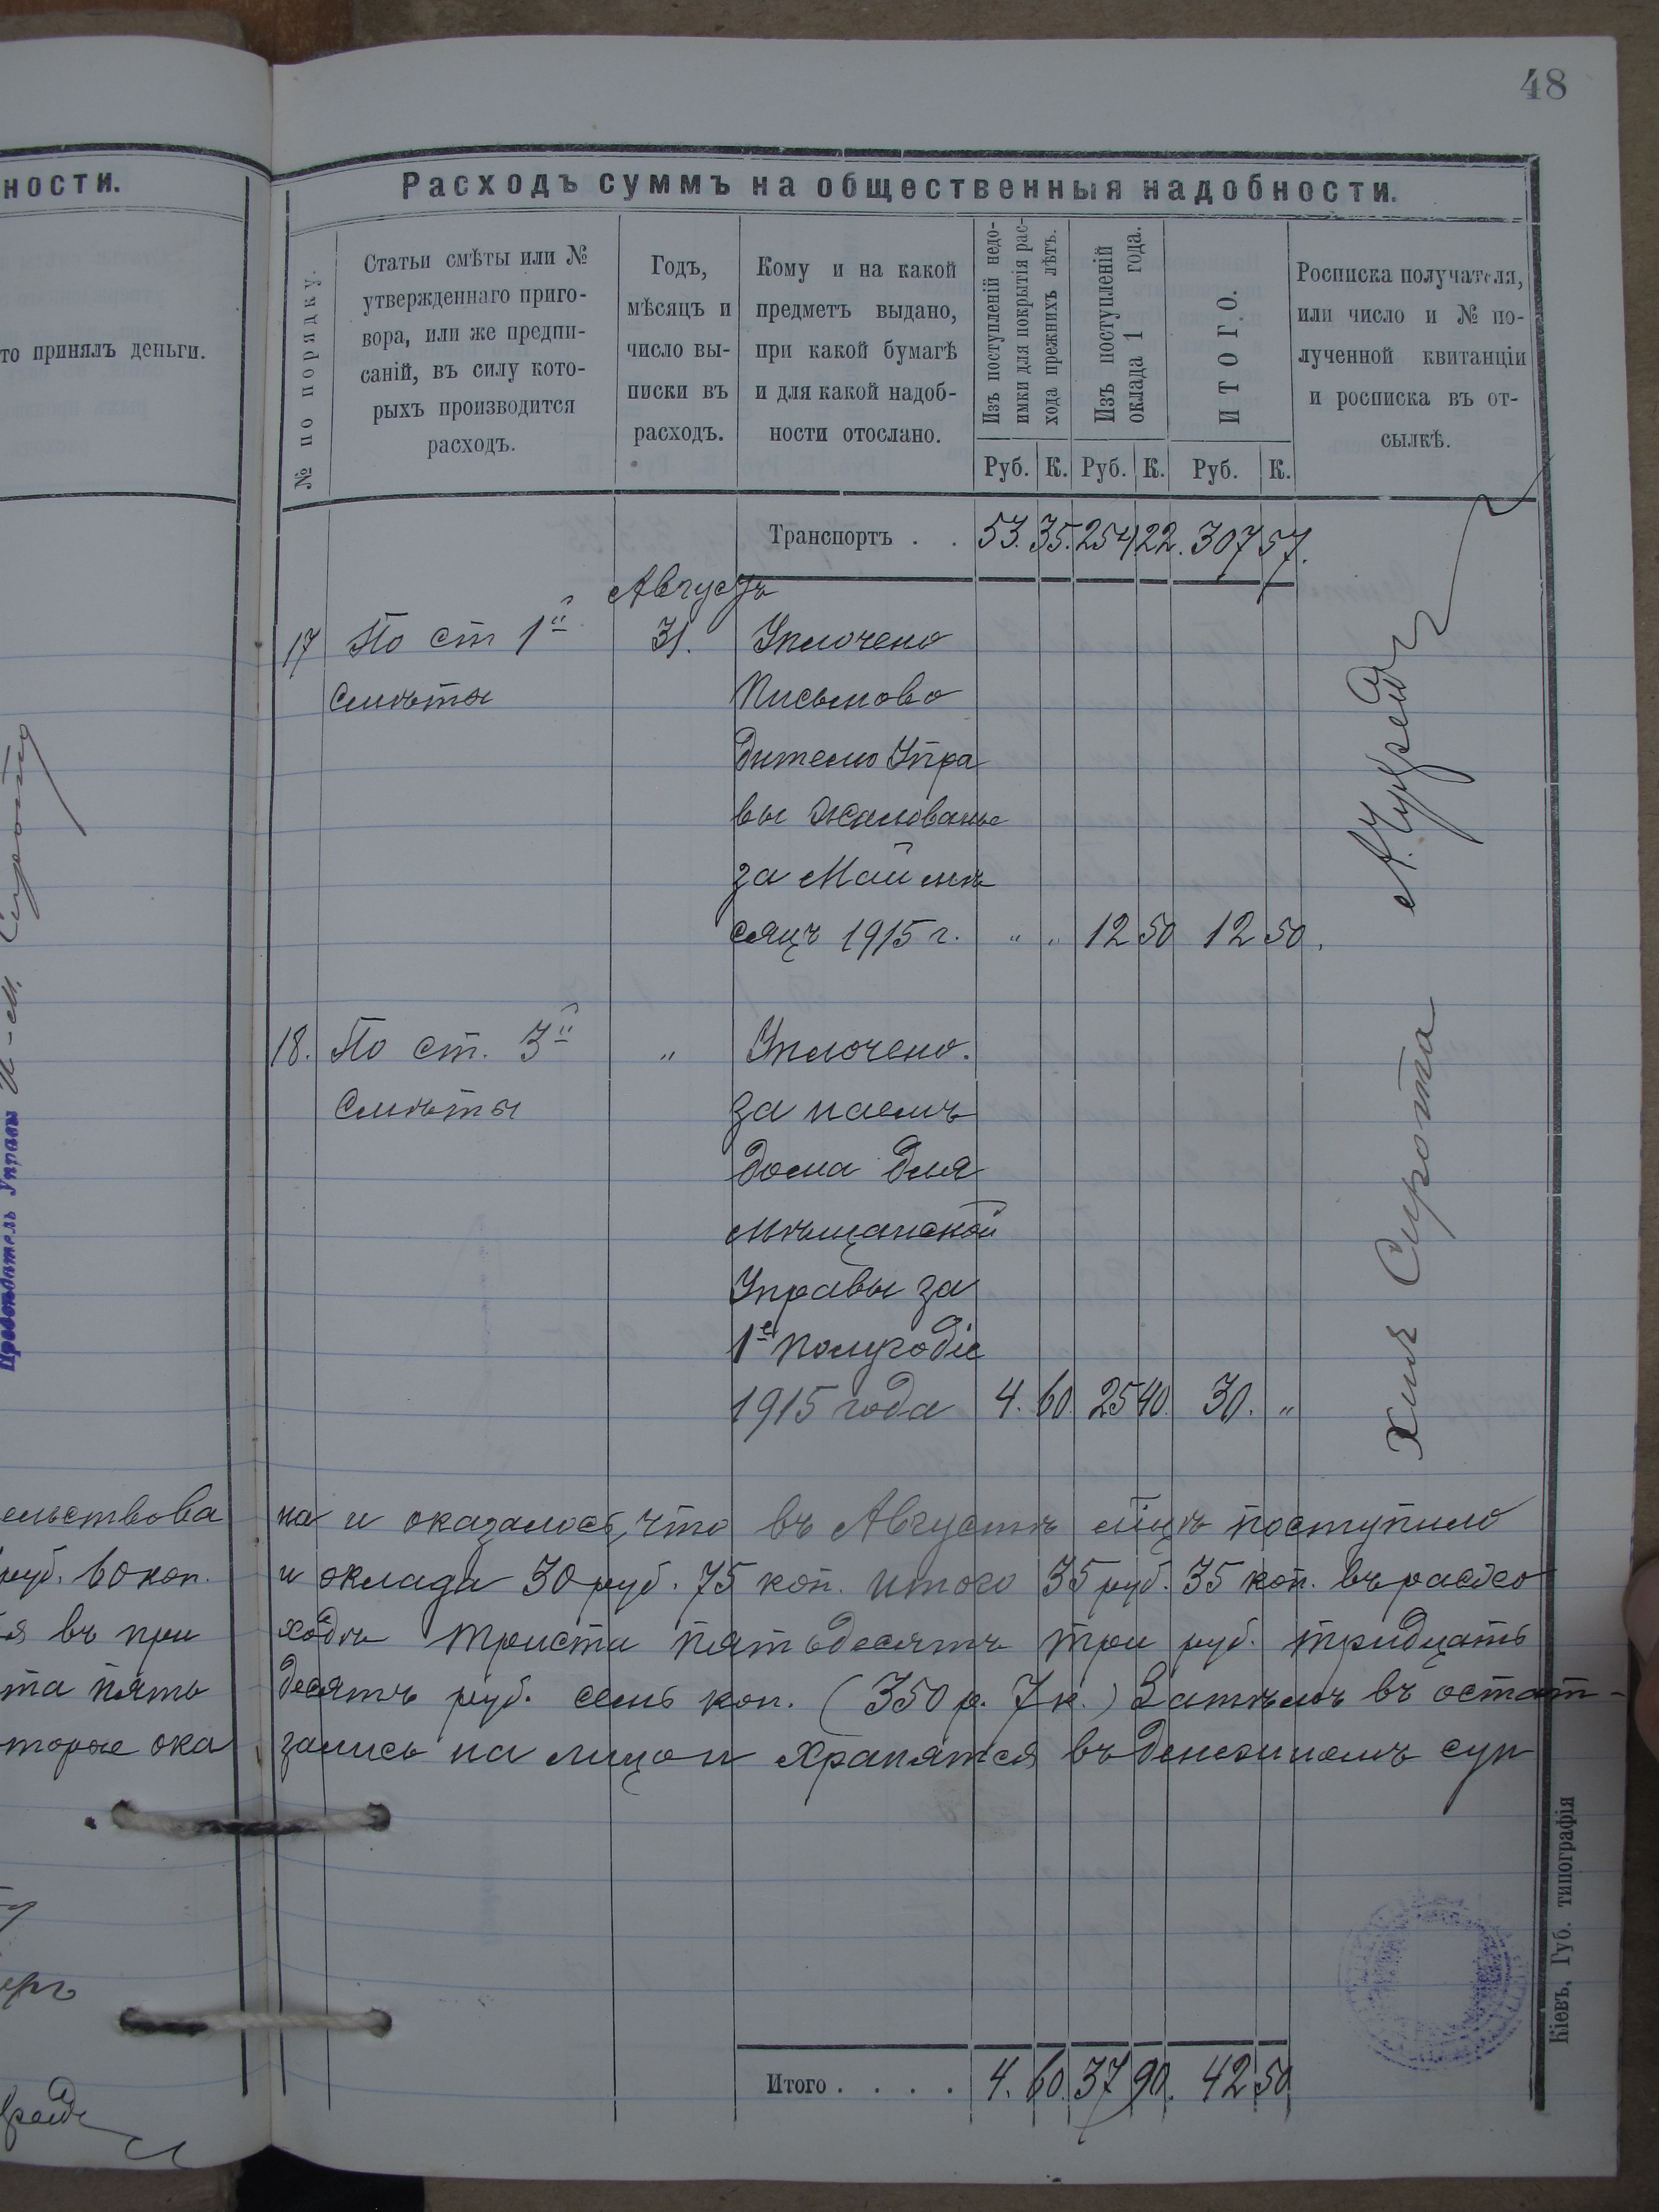 48
ности.
то принялъ деньги.
Расходъ суммъ на общественныя надобности.
№ по порядку.
Статьи смѣты или №
утвержденнаго приго-
вора, или же предпи-
саній, въ силу кото-
рыхъ производится
расходъ.
Годъ,
мѣсяцъ и
число вы-
писки въ
расходъ.
Кому и на какой
предметъ выдано,
при какой бумагѣ
и для какой надоб-
ности отослано.
Изъ поступленій недо-
имки для покрытія рас-
хода прежнихъ лѣтъ.
Изъ поступленій
оклада 1 года.
ИТОГО.
Росписка получателя,
или число и № по-
лученной квитанціи
и росписка въ от-
сылкѣ.
Руб. К. Руб. К. Руб. К.
Транспортъ . . 53. 35. 254 22. 307 57.
Августъ
17 По ст 1й 31. Уплочено
Смѣты Письмово
дителю Упра
вы жалованье
за Май мѣ
сяцъ 1915 г. " " 12 50 12 50.
18. По ст. 3й " Уплочено.
Смѣты за наемъ
дома для
мѣщанской
Управы за
1е полугодіе
1915 года 4. 60. 25 40. 30. "
Хиля Сирота
Сирота
Предсѣдатель Управы И-М.
ельствова на и оказалось, что въ Августѣ мцѣ поступило
руб. 60 коп. и оклада 30 руб. 75 коп. итого 35 руб. 35 коп. въ расхо
я въ при ходѣ триста пятьдесятъ три руб. тридцать
та пять десятъ руб. семь коп. (350 р. 7 к.) Затѣмъ въ остат-
торые ока зались на лицо и хранятся въ денежномъ сун
Итого . . . . 4. 60. 37 90. 42 50
Кіевъ, Губ. типографія